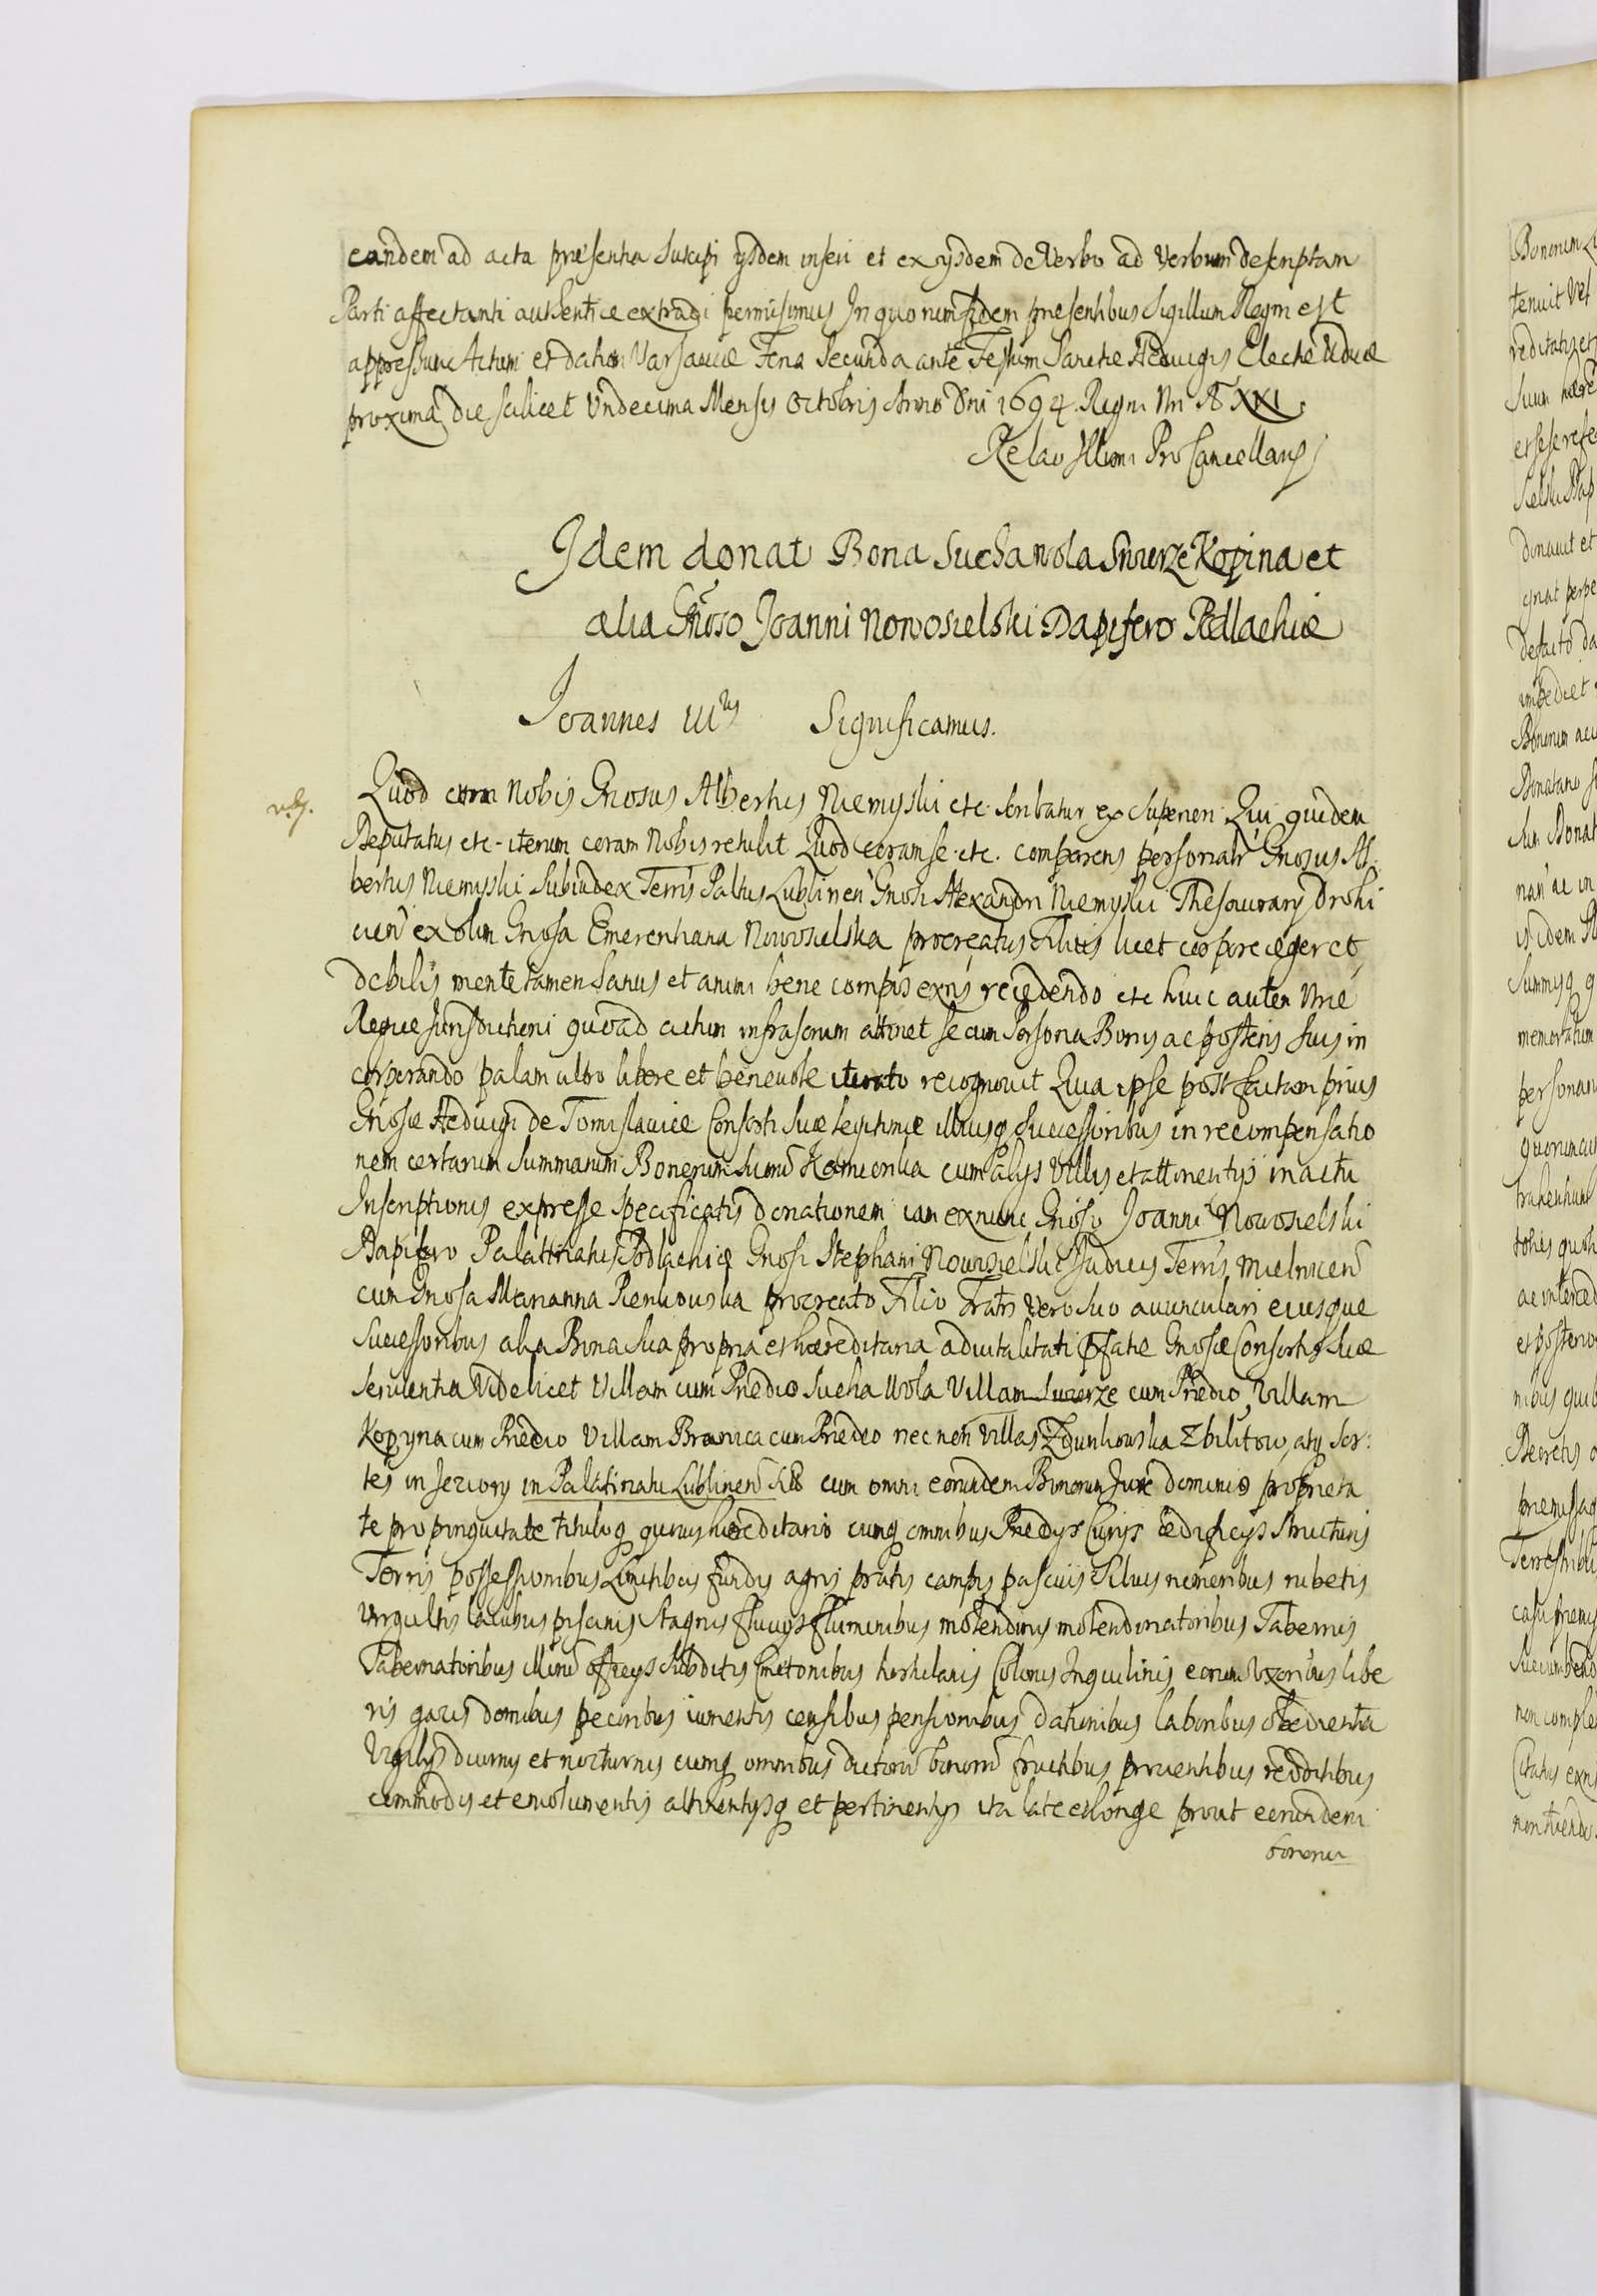 eandem ad acta præsentia suscipi ijsdem inseri et ex ijsdem de Verbo ad Verbum descriptam
Parti affectanti authenticæ extradi permisimus In quorum fidem præsentibus Sigillum Regni est
appressum Actum et datum Varsaviæ Feria Secunda ante Festum Sanctæ Hedvigis Electæ Viduæ
proxima die scilicet Undecima Mensis Octobris Anno Dni 1694. Regni Nri Ao XXI.
Relao Illmi Pro Cancellarij
Idem donat Bona Suchawola Swierze Kopina et
alia Gnoso Joanni Nowosielski Dapifero Podlachiæ
Joannes IIIus Significamus.
Quod coram Nobis Gnosus Albertus Niemyski etc. scribatur ex Superiori Qui quidem
Deputatus etc. iterum coram Nobis retulit Quod coram se etc. comparens personalr Gnosus Al
bertus Niemyski Subiudex Terris Paltus Lublinen Gnosi Alexandri Niemyski Thesaurarij Drohi
cien ex olim Gnosa Emerentiana Nowosielska procreatus Filius licet corpore æger et
debilis mente tamen sanus et animi bene compos exns recedendo etc huic autem Nræ
Regiæ Jurisdictioni quoad actum infrascrum attinet se cum Persona Bonis ac posteris suis in
corporando palam ultro libere et benevole iterato recognovit Quia ipse post factam prius
Gnosæ Hedvigi de Tomislavice Consorti suæ legitimæ illiusq successoribus in recompensatio
nem certarum summarum Bonorum suorum Kamionka cum alijs Villis et attinentijs in actu
Inscriptionis expresse specificatis donationem iam exnunc Gnoso Joanni Nowosielski
Dapifero Palattinatus Podlachiæ Gnosi Stephani Nowosielski Judicis Terris Mielnicen
cum Gnosa Marianna Pienkowska procreato Filio Fratri vero suo avunculari eiusque
Successoribus alia Bona sua propria et hæreditaria advitalitati Pfatæ Gnosæ Consortis suæ
servientia Videlicet Villam cum Prædio Sucha Wola Villam Swierze cum Prædio, Villam
Kopyna cum Prædio Villam Branica cum Prædio nec non Villas Zdunkowska Zbilitow, atq Sor:
tes in Jeziory in Palatinatu Lublinen cum omni eorundem Bonorum Jure dominio proprieta
te propinquitate tituloq quovis hæreditario cumq omnibus Prædijs Curijs ædificijs Structuris
Terris possessionibus Limitibus fundis agris pratis campis pascuis Silvis nemoribus rubetis
Virgultis lacubus piscinis stagnis fluvijs fluminibus molendinis molendinatoribus Tabernis
Tabernatoribus illorum officijs Subditis Cmetonibus hortulanis Colonis Inquilinis eorum Uxoribus libe
ris gazis domibus pecoribus iumentis censibus pensionibus dationibus laboribus obedientia
Vigilijs diurnis et nocturnis cumq omnibus dictorum bonorum fructibus proventibus redditibus
commodis et emolumentis attinentijsq et pertinentijs ita late et longe prout eorundem
bonorum